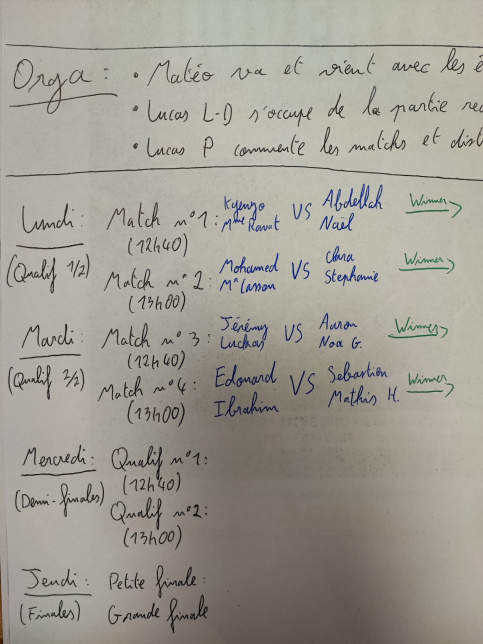 Orga : • Matéo va et vient avec les é
• Lucas L-D s'occupe de la partie re
• Lucas P commente les matchs et dist
Lundi : Match n°1 : Kyenzo VS Abdellah Winner
(12h40) Mme Ravat Naël
(Qualif 1/2) Match n°2 : Mohamed VS Clara Winner
(13h00) Mr Casson Stephanie
Mardi : Match n°3 : Jérémy VS Aaron Winner
(12h40) Luckas Noa G.
(Qualif 2/2) Match n°4 : Edouard VS Sebastien Winner
(13h00) Ibrahim Mathis H.
Mercredi : Qualif n°1 :
(12h40)
(Demi-finales) Qualif n°2 :
(13h00)
Jeudi : Petite finale :
(Finales) Grande finale